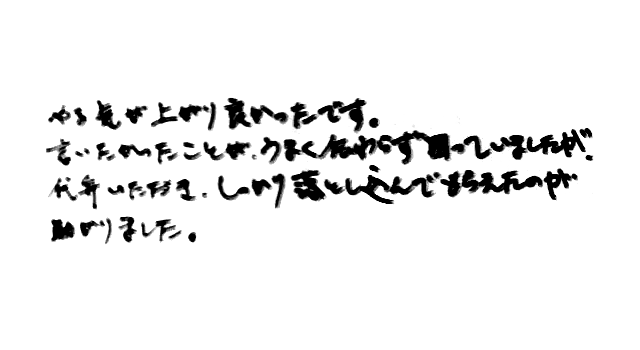 やる気が上がり良かったです。
言いたかったことが、うまく伝わらず困っていましたが、
代弁いただき、しっかり落とし込んでもらえたのが
助かりました。